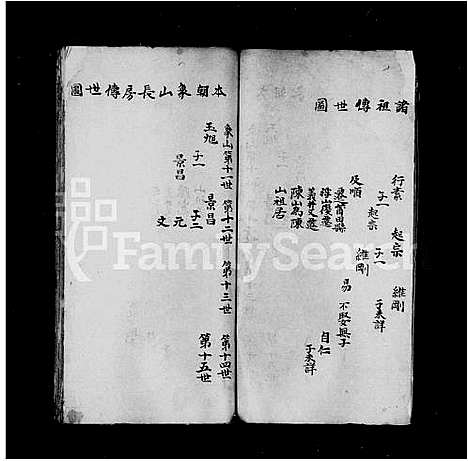 諸祖傳世圖
行素
子一
起宗
起宗
子一
維剛
維剛
子未詳
及順
易
不娶無子
自仁
子未詳
義井又遷
陳山為陳
山祖居
本朝象山長房傳世圖
象山第十一世
第十二世
第十三世
第十四世
第十五世
玉旭
子一
景昌
景昌
子二
元
文
FamilySearch